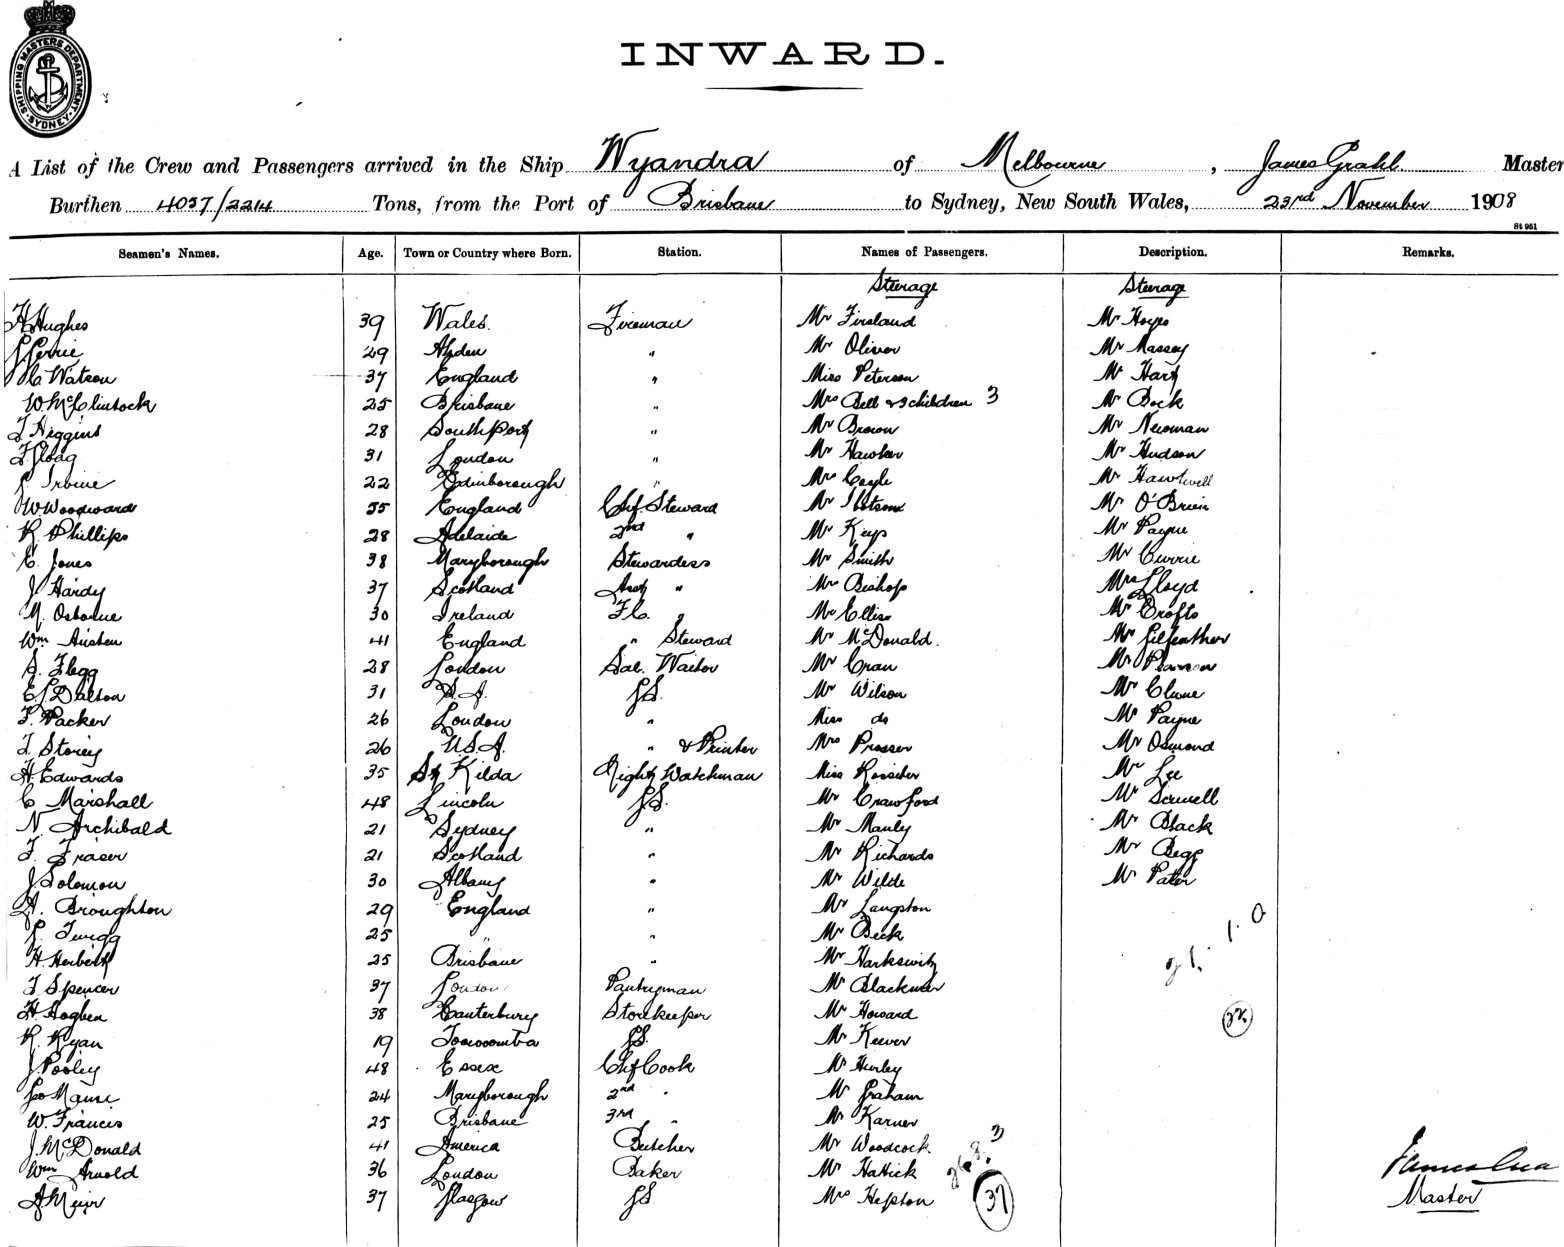 SHIPPING MASTERS DEPARTMENT SYDNEY
INWARD.
A List of the Crew and Passengers arrived in the Ship Wyandra of Melbourne, James Grahl. Master
Burthen 4057/2214 Tons, from the Port of Brisbane to Sydney, New South Wales, 23rd November 1908
St 951
Seamen's Names. Age. Town or Country where Born. Station. Names of Passengers. Description. Remarks.
Steerage Steerage
H Hughes 39 Wales. Fireman Mr Firsland Mr Hoyes
29 " Mr Oliver Mr Massey
C Watson 37 England " Miss Peterson Mr Hart
W. McClintock 25 Brisbane " Mrs Bell & 3 children 3 Mr Bock
T Higgins 28 Southport " Mr Brown Mr Newman
31 London " Mr Hawker Mr Hudson
J Irvine 22 Edinborough " Mrs Coyle Mr
W. Woodward 55 England Chf Steward Mr Ibbotson Mr O'Brien
R Phillips 28 Adelaide 2nd " Mr Keys Mr Payne
E. Jones 38 Maryborough Stewardess Mr Smith Mr Currie
J Hardy 37 Scotland Asst " Mrs Bishop Mrs Lloyd
M. Osborne 30 Ireland F.C. " Mr Ellis Mr Crofts
Wm Austen 41 England " Steward Mr McDonald. Mr Gilfeather
S. Flegg 28 London Sal. Waiter Mr Cran Mr
E J Dalton 31 S.A. G.S. Mr Wilson Mr Clune
F. Packer 26 London " Miss do Mr Payne
T. Storey 26 U.S.A. " & Printer Mrs Prosser Mr Osmond
H Edwards 35 St Kilda Night Watchman Miss Rossiter Mr Lee
C Marshall 48 Lincoln G.S. Mr Crawford Mr Sewell
N Archibald 21 Sydney " Mr Manly Mr Black
F. Fraser 21 Scotland " Mr Richards Mr Begg
J Solomon 30 Albany " Mr Wilde Mr Pater
A. Broughton 29 England " Mr Langston
Twigg 25 " " Mr Beck
H Herbert 25 Brisbane " Mr Harkswitz
T Spencer 37 London Pantryman Mr Blackman
H Hogben 38 Canterbury Storekeeper Mr Howard
R. Ryan 19 Toowoomba G.S. Mr Keever
J Pooley 48 Essex Chf Cook Mr Hurley
Geo Manse 24 Maryborough 2nd " Mr Graham
W. Francis 25 Brisbane 3rd " Mr Karner
J. McDonald 41 America Butcher Mr Woodcock.
Wm Arnold 36 London Baker Mr Hattick
A Muir 37 Glasgow G.S. Mrs Hepton
21. 1. 0
22
26. 8. 3
37
Master